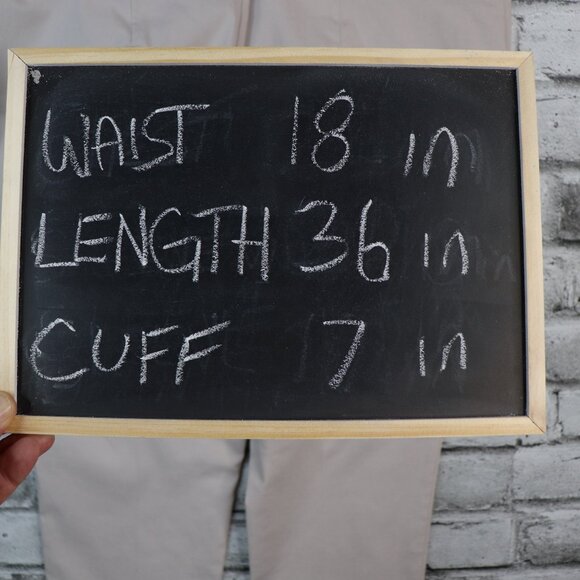 WAIST 18 in
LENGTH 36 in
CUFF 7 in